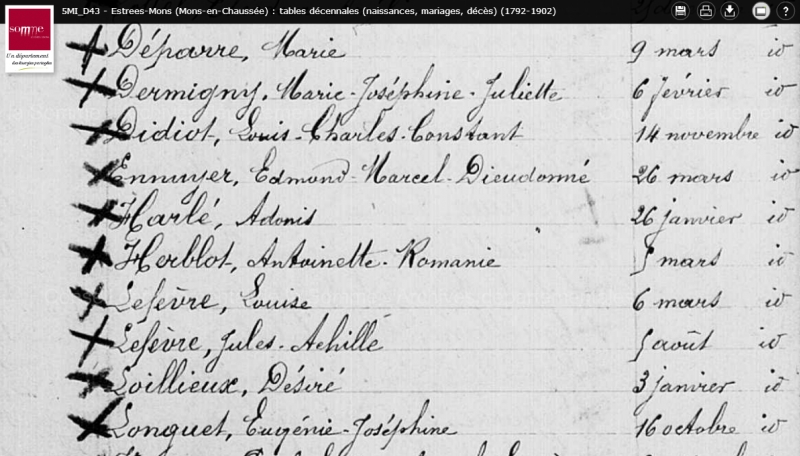 5MI_D43 - Estrees-Mons (Mons-en-Chaussée) : tables décennales (naissances, mariages, décès) (1792-1902)
somme
Déparre, Marie 9 mars id
Dermigny, Marie-Joséphine-Juliette 6 février id
Didiot, Louis-Charles-Constant 14 novembre id
Ennuyer, Edmond-Marcel-Dieudonné 26 mars id
Harlé, Adonis 26 janvier id
Herblot, Antoinette-Romanie 5 mars id
Lefèvre, Louise 6 mars id
Lefèvre, Jules-Achille 5 août id
Loillieux, Désiré 3 janvier id
Longuet, Eugénie-Joséphine 16 octobre id